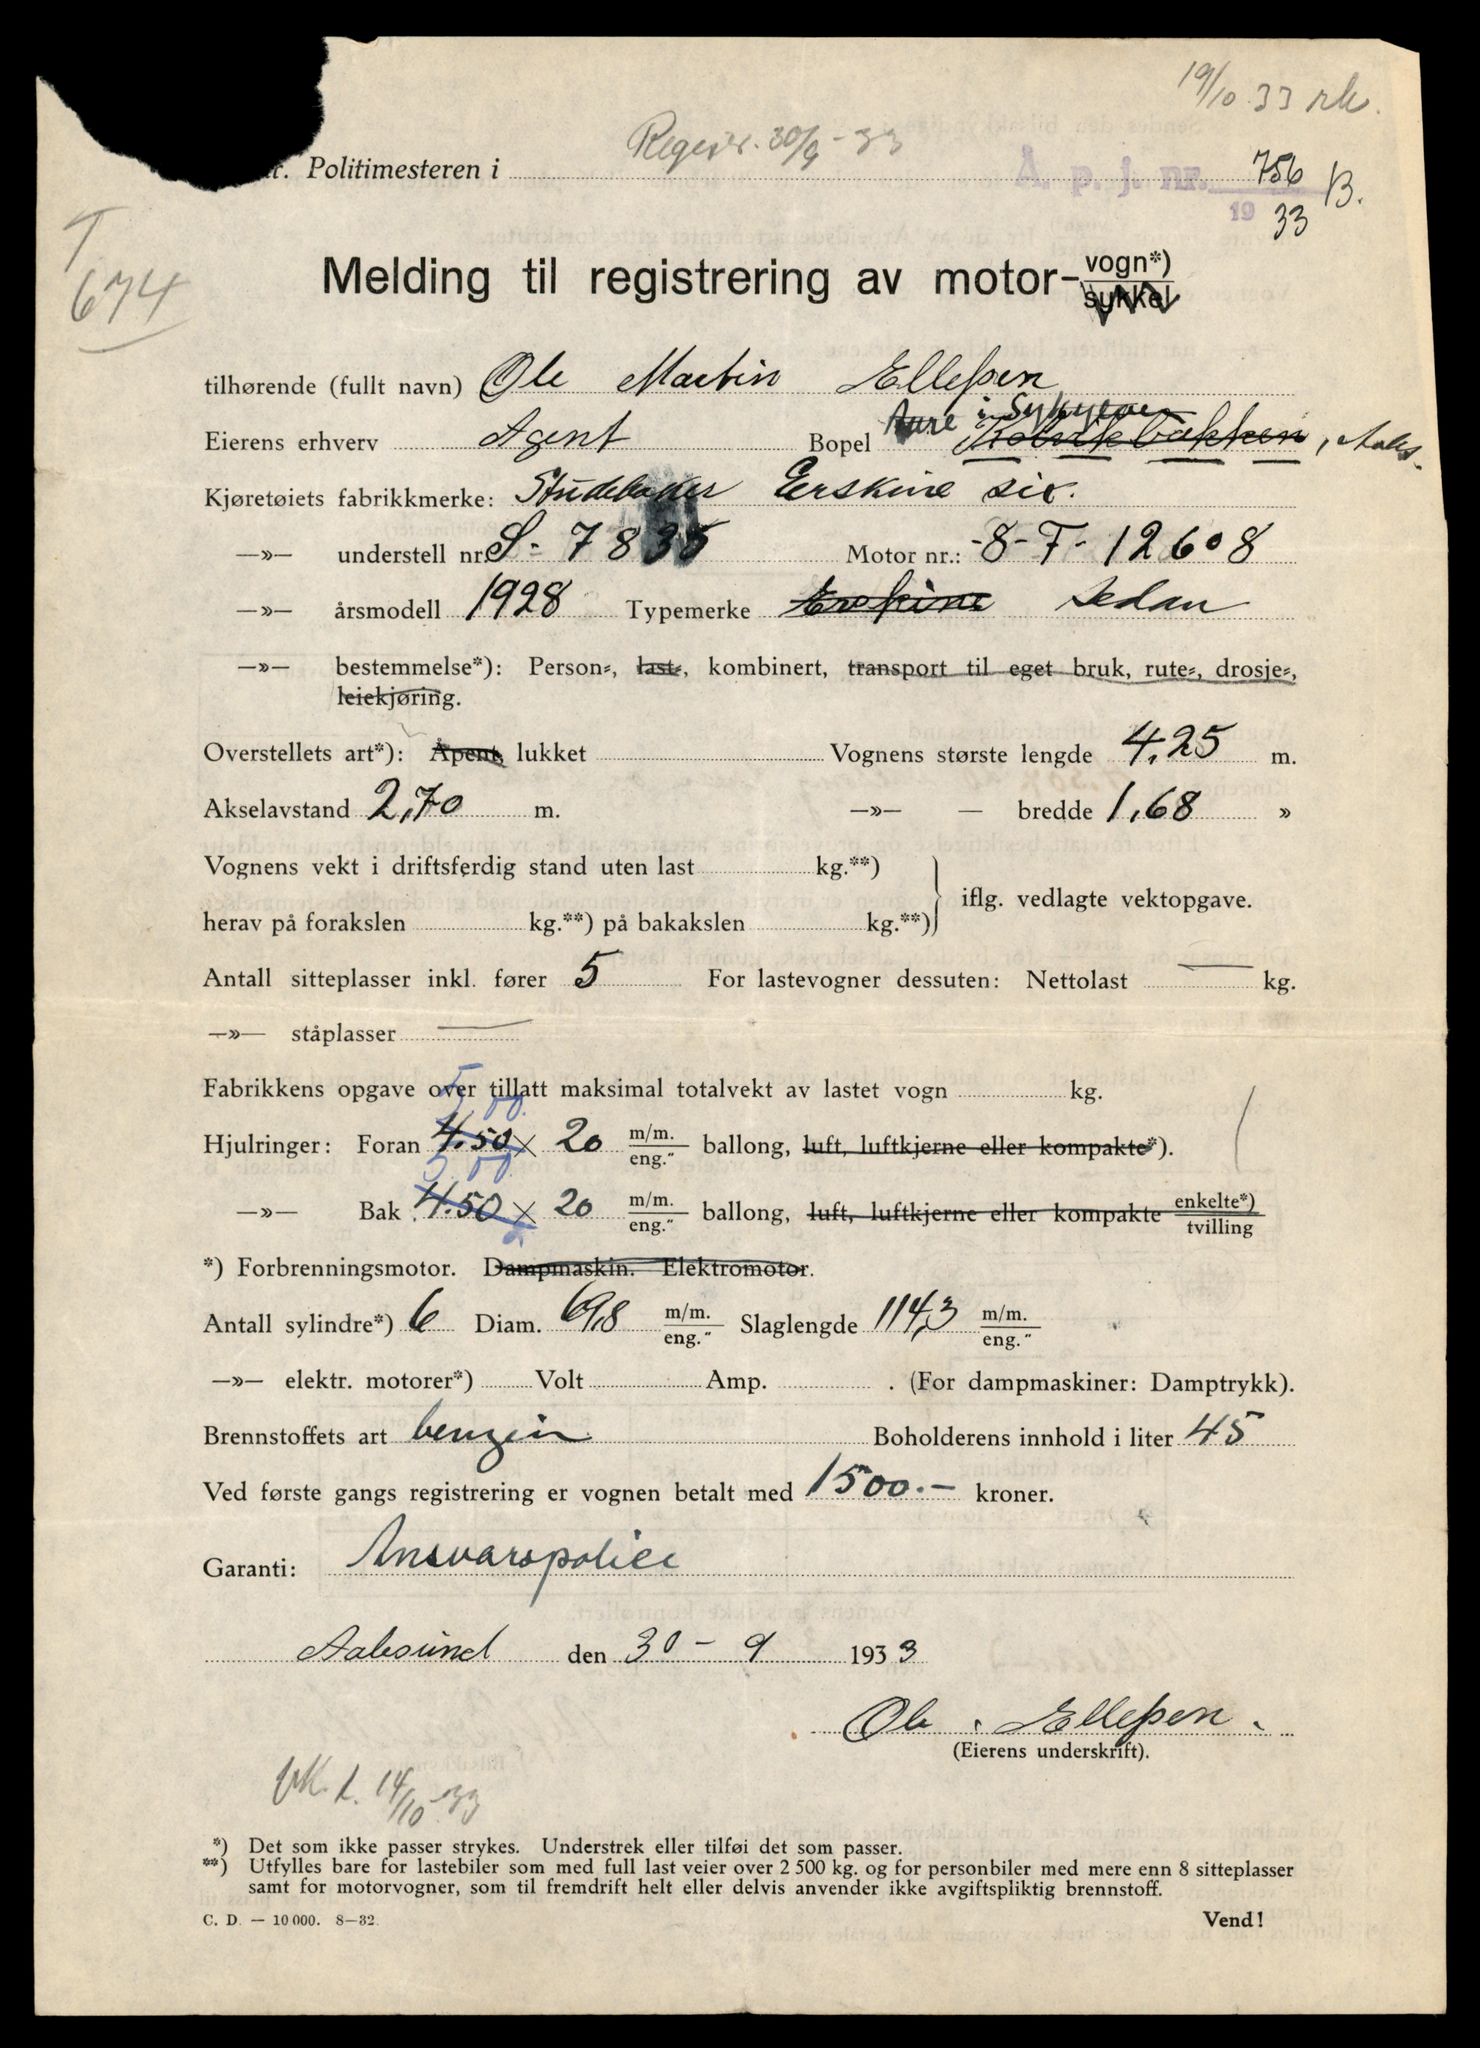 19/10 33
Regist. 30/9 - 33
r. Politimesteren i
Å. p. j. nr. 756 B.
19 33
T
674
Melding til registrering av motor-vogn*)
sykkel
tilhørende (fullt navn) Ole Martin Ellefsen
Aure i Sykylven
Eierens erhverv Agent Bopel Kolvikbakken, Aales.
Kjøretøiets fabrikkmerke: Studebaker Eerskine six.
—»— understell nr. S- 7835 Motor nr.: -8-T-12608
—»— årsmodell 1928 Typemerke Erskine Sedan
—»— bestemmelse*): Person-, last-, kombinert, transport til eget bruk, rute-, drosje-,
leiekjøring.
Overstellets art*): Åpent, lukket Vognens største lengde 4,25 m.
Akselavstand 2,70 m. —»— — bredde 1,68 »
Vognens vekt i driftsferdig stand uten last kg.**)
herav på forakslen kg.**) på bakakslen kg.**) iflg. vedlagte vektopgave.
Antall sitteplasser inkl. fører 5 For lastevogner dessuten: Nettolast — kg.
—»— ståplasser —
Fabrikkens opgave over tillatt maksimal totalvekt av lastet vogn kg.
5,00
Hjulringer: Foran 4.50 × 20 m/m. eng.″ ballong, luft, luftkjerne eller kompakte*).
5.00
—»— Bak 4.50 × 20 m/m. eng.″ ballong, luft, luftkjerne eller kompakte enkelte*) tvilling
*) Forbrenningsmotor. Dampmaskin. Elektromotor.
Antall sylindre*) 6 Diam. 69,8 m/m. eng.″ Slaglengde 114,3 m/m. eng.″
—»— elektr. motorer*) Volt Amp. . (For dampmaskiner: Damptrykk).
Brennstoffets art benzin Boholderens innhold i liter 45
Ved første gangs registrering er vognen betalt med 1500.- kroner.
Garanti: Ansvarspolice
Aalesund den 30 - 9 1933
Ole . Ellefsen.
(Eierens underskrift).
14/10 33
*) Det som ikke passer strykes. Understrek eller tilføi det som passer.
**) Utfylles bare for lastebiler som med full last veier over 2 500 kg. og for personbiler med mere enn 8 sitteplasser
samt for motorvogner, som til fremdrift helt eller delvis anvender ikke avgiftspliktig brennstoff.
C. D. — 10 000. 8—32. Vend!